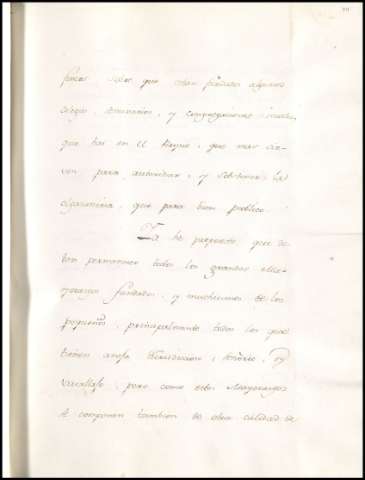 fincas sobre que estan fundados algunos
colegios, seminarios, y congregaciones
que hai en el Reyno, que mas sir-
ven para autorizar, y sostener la
que para bien publico.
Ya he propuesto que de-
ven permanecer todos los grandes Mayo-
razgos fundados, y muchisimos de los
pequeños, principalmente todos los que
tienen anexa Jurisdiccion, y
vasallage; pero como estos Mayorazgos
se componen tambien de otra calidad de